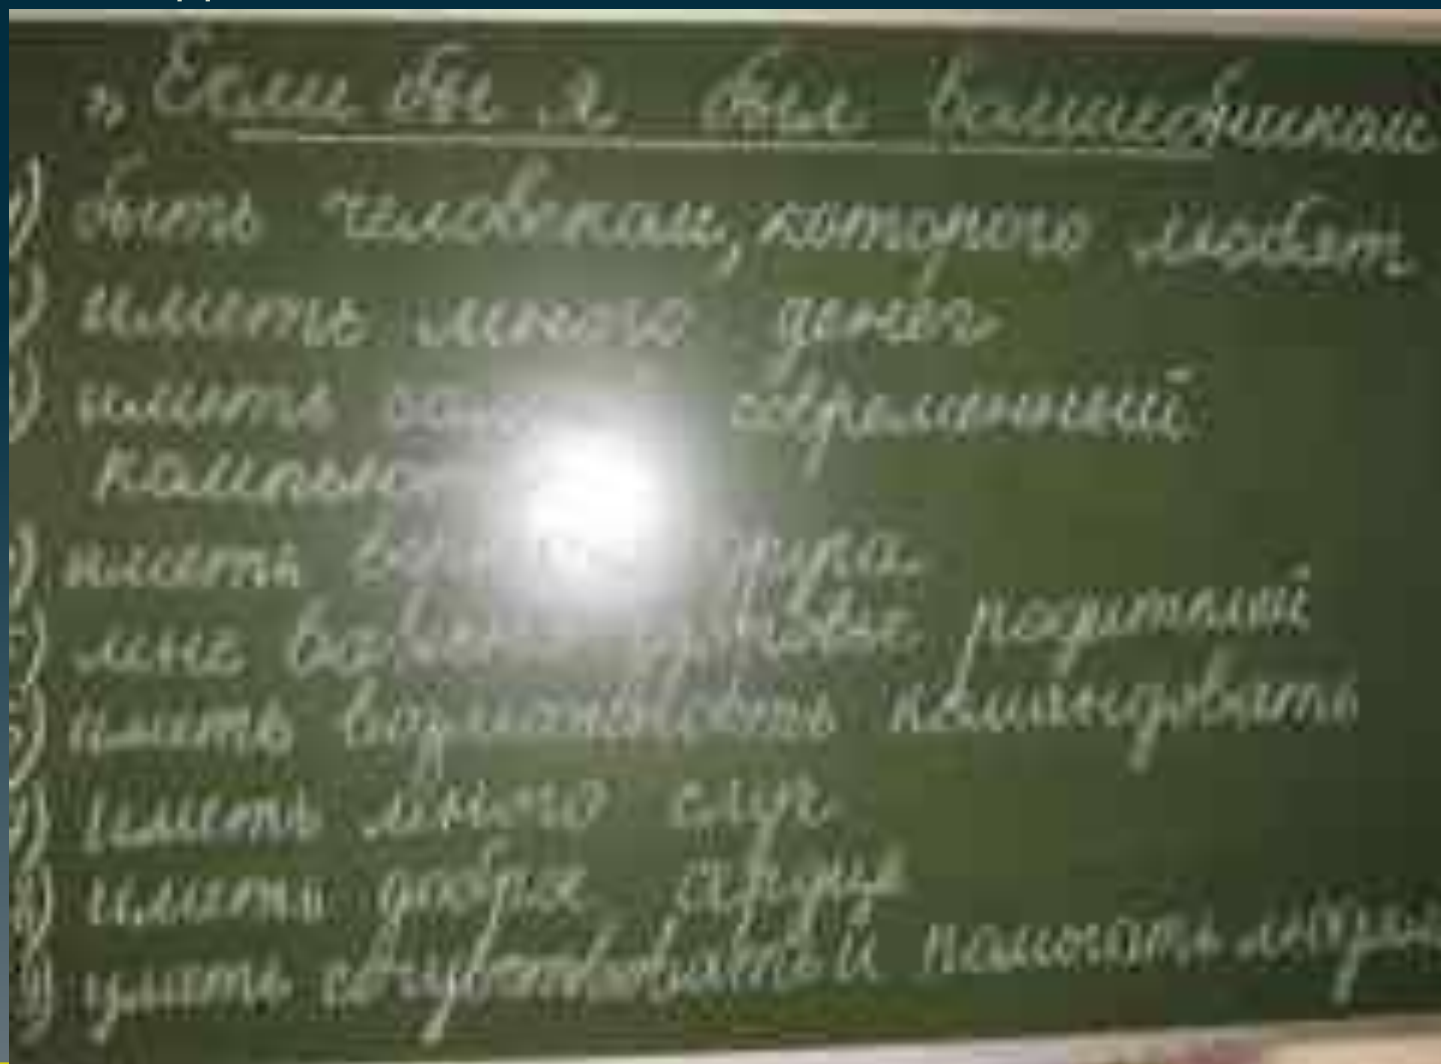 „Если бы я был волшебником
1) быть человеком, которого любят
2) иметь много денег
3) иметь современный
4) иметь друга
5) мне родителей
6) иметь возможность командовать
7) иметь много слуг
8) иметь доброе сердце
9) уметь сочувствовать и помогать людям